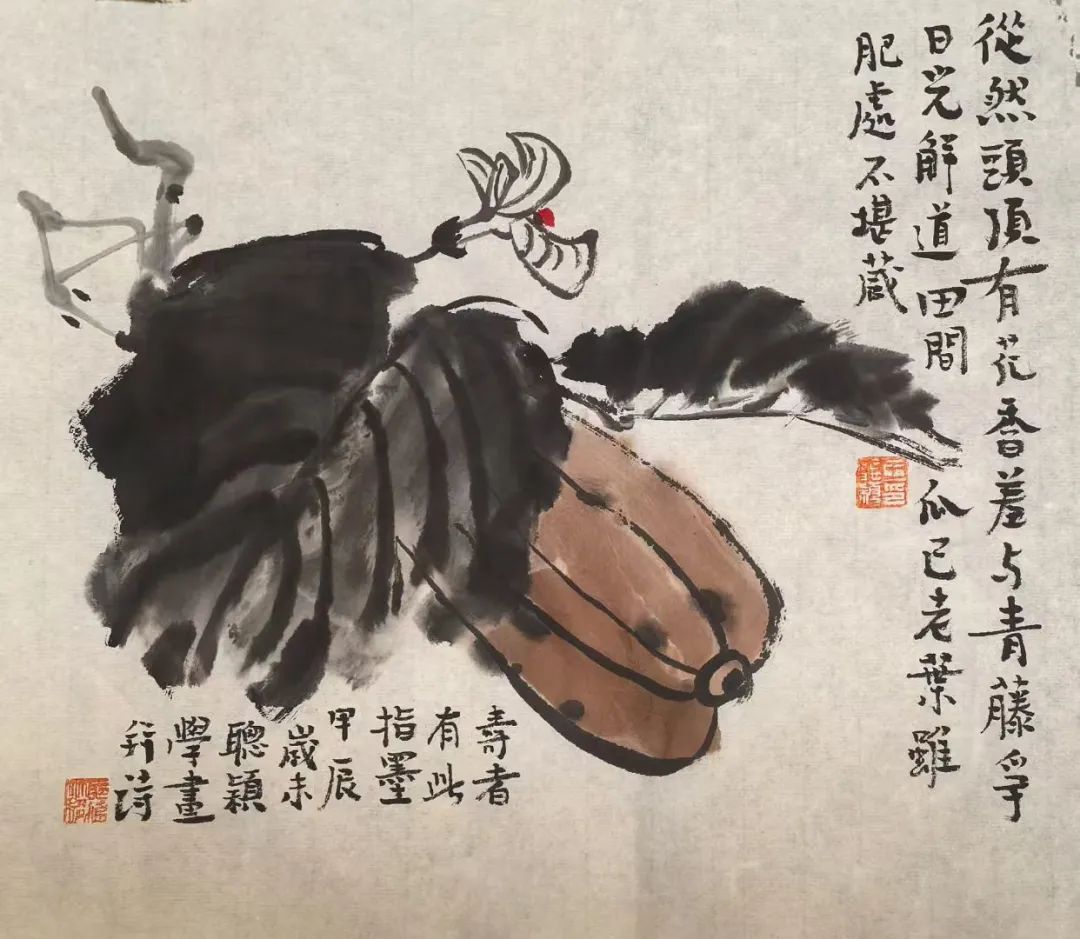 從然頭頂有花香羞与青藤爭
日光解道田間瓜已老葉雖
肥處不堪藏
壽者
有此
指墨
甲辰
歲末
聰穎
學畫
并詩